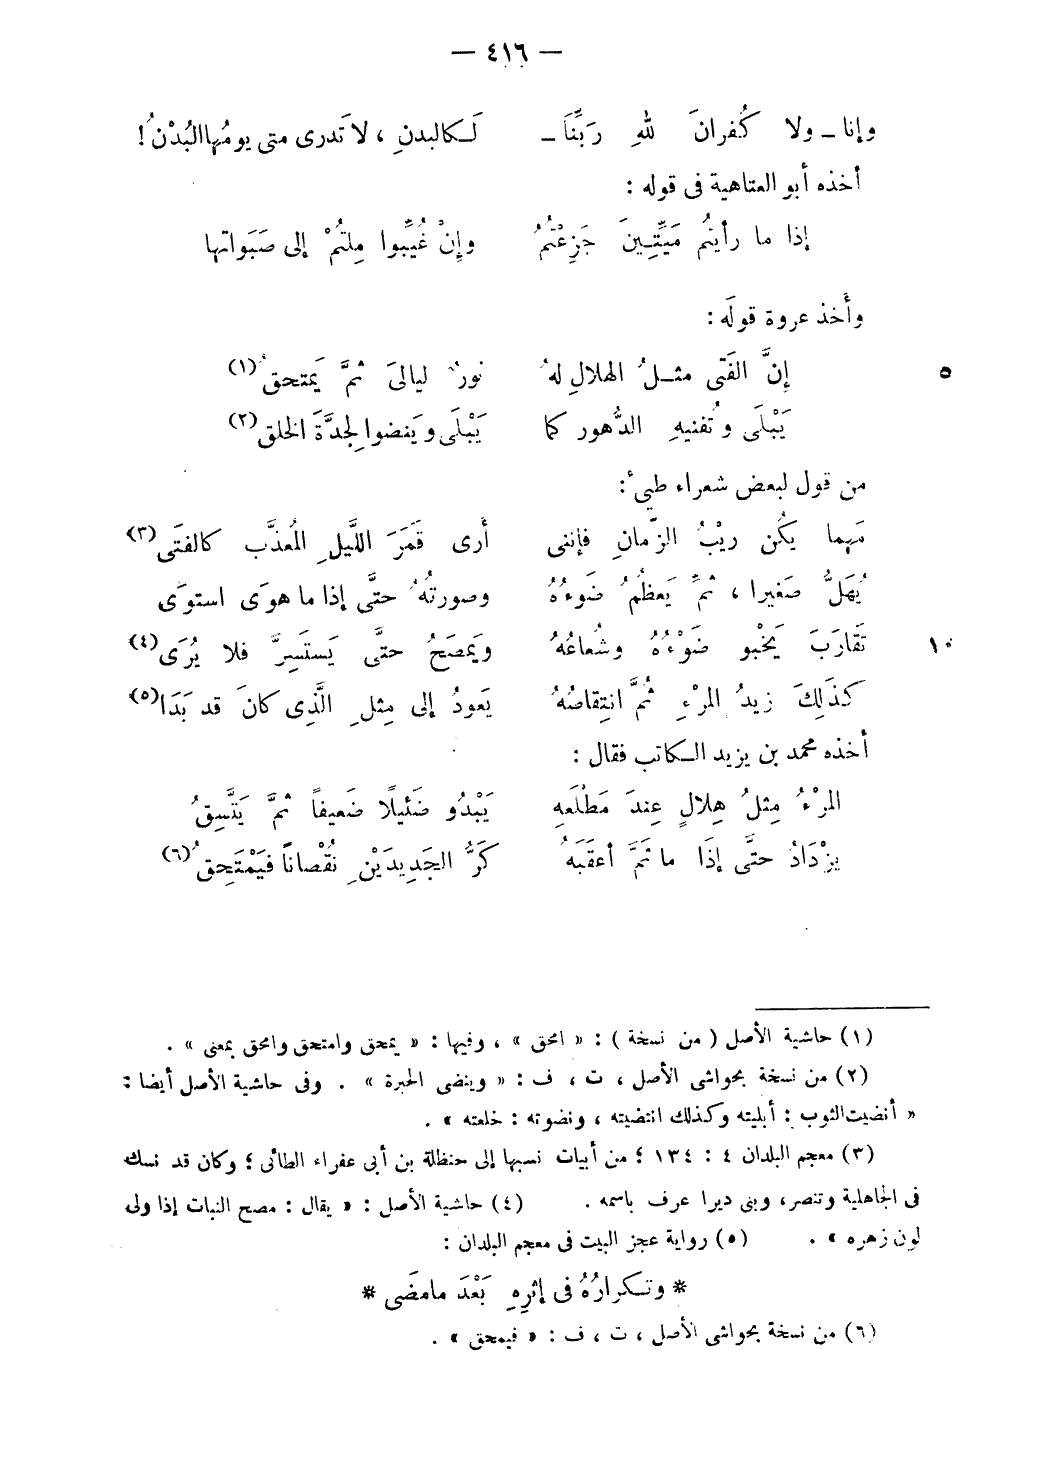 — ٤١٦ —
وإنا ـ ولا كُفرانَ للهِ رَبِّنَا ـ لَكالبدنِ ، لا تَدرى متى يومُها البُدْنُ !
أخذه أبو العتاهية فى قوله :
إذا ما رأيتُم مَيِّتِينَ جَزِعْتُمُ وإِنْ غُيِّبوا مِلتُمْ إلى صَبَواتها
وأَخذ عروة قولَه :
إنَّ الفَتى مثلُ الهلالِ لهُ نورٌ ليالىَ ثمَّ يَمتحقُ (١) ٥
يَبْلَى وتُفنيهِ الدُّهور كما يَبْلَى ويَنضوا لِجدَّةَ الخلق (٢)
من قول لبعض شعراء طيئ :
مَهما يكُن ريْبُ الزّمانِ فإننى أرى قَمَرَ اللَّيلِ المُعذَّب كالفتَى (٣)
يُهَلُّ صَغيرا ، ثمَّ يَعظُمُ ضَوءُهُ وصورتُهُ حتَّى إذا ما هوَى استوَى
تَقارَبَ يَخْبو ضَوْءُهُ وشُعاعُهُ وَيَمصَحُ حتَّى يَستَسِرَّ فلا يُرَى (٤) ١٠
كَذَلِكَ زيدُ المرْءِ ثُمَّ انتِقاصُهُ يَعودُ إلى مِثلِ الَّذِى كانَ قد بَدَا (٥)
أخذه محمد بن يزيد الكاتب فقال :
المرْءُ مِثلُ هِلالٍ عِندَ مَطْلَعِهِ يَبْدُو ضَئيلًا ضَعيفاً ثمَّ يَتَّسِقُ
يزْدَادُ حتَّى إذَا ما تَمَّ أعقَبَهُ كَرُّ الجَدِيدَيْنِ نُقْصَاناً فَيَمْتَحِقُ (٦)
(١) حاشية الأصل ( من نسخة ) : « امحق » ، وفيها : « يمحق وامتحق وامحق بمعنى » .
(٢) من نسخة بحواشى الأصل ، ت ، ف : « وينضى الحبرة » . وفى حاشية الأصل أيضا :
« أنضيت الثوب : أبليته وكذلك انتضيته ، ونضوته : خلعته » .
(٣) معجم البلدان ٤ : ١٣٤ ؛ من أبيات نسبها إلى حنظلة بن أبى عفراء الطائى ؛ وكان قد نسك
فى الجاهلية وتنصر، وبنى ديرا عرف باسمه . (٤) حاشية الأصل : « يقال : مصح النبات إذا ولى
لون زهره » . (٥) رواية عجز البيت فى معجم البلدان :
* وتكرارُهُ فى إثرِهِ بَعْدَ مامضَى *
(٦) من نسخة بحواشى الأصل ، ت ، ف : « فيمحق » .